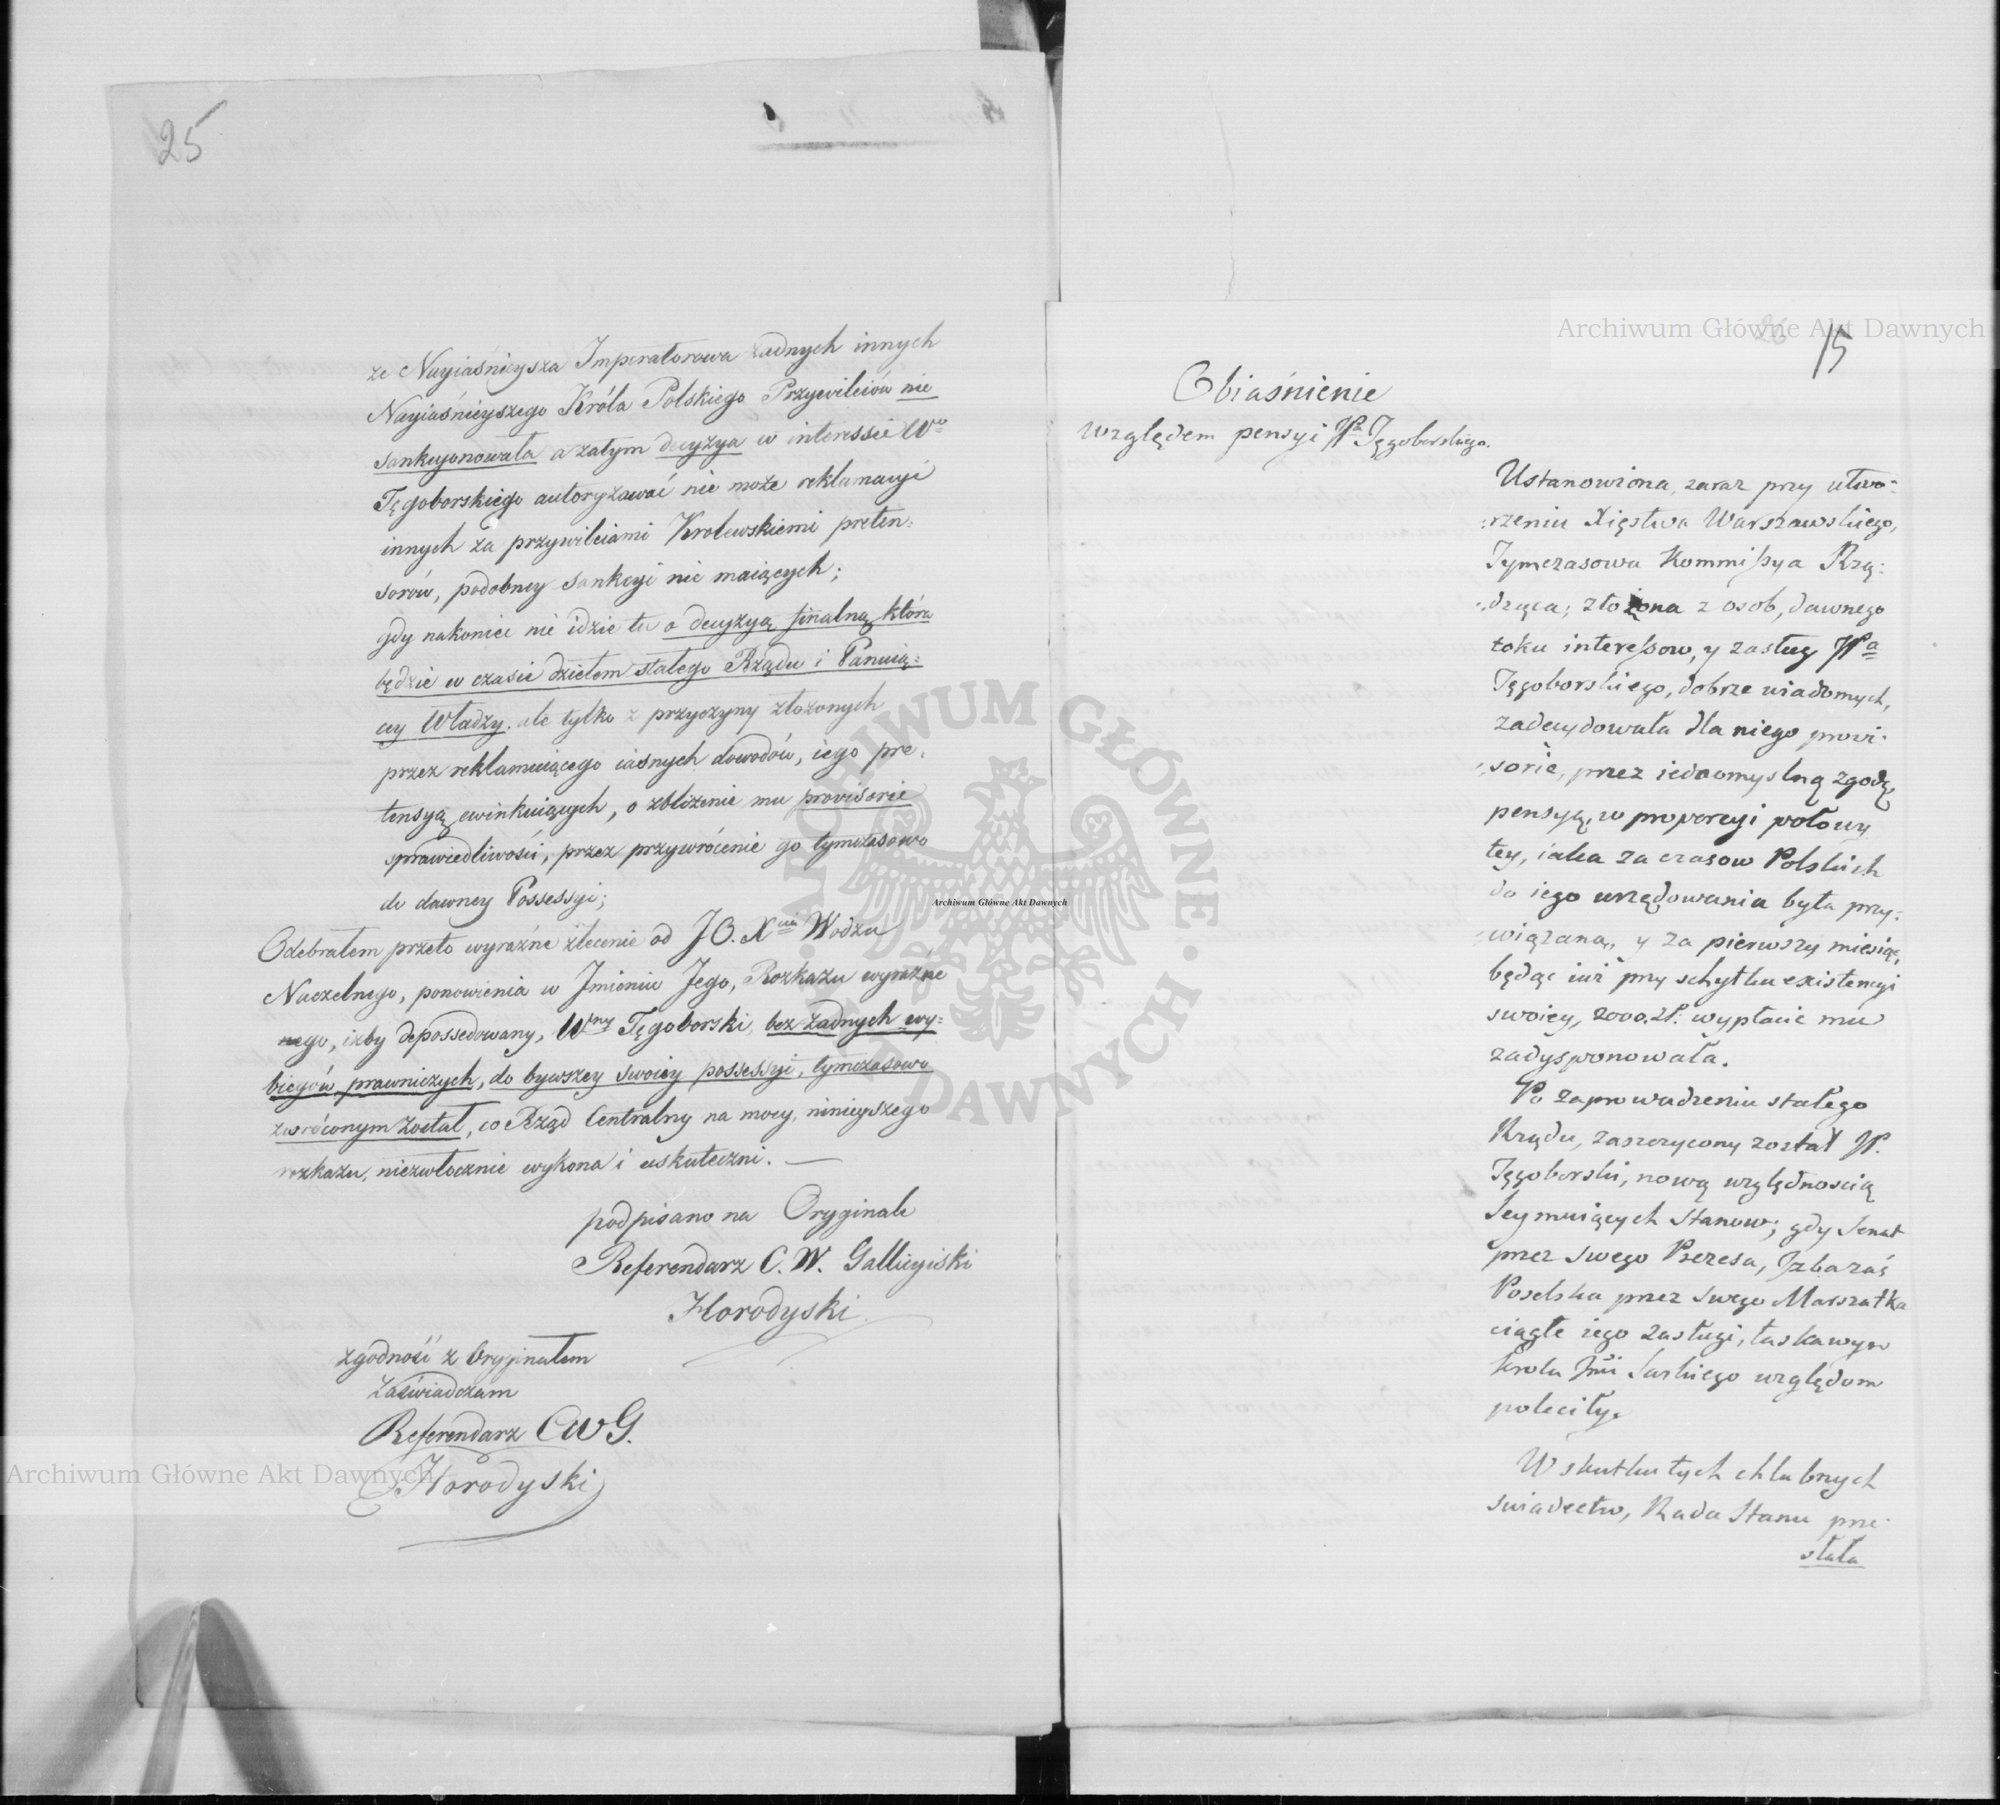 25
ze Nayiaśnieysza Imperatorowa żadnych innych
Nayiaśnieyszego Króla Polskiego Przywileiów nie
sankcyonowała a zatym decyzya w interessie Wo
Tęgoborskiego autoryzować nie może reklamacyi
innych za przywileiami Krolewskiemi preten:
sorów, podobney sankcyi nie maiących;
gdy nakoniec nie idzie tu o decyzyą finalną która
będzie w czasie dziełem stałego Rządu i Panuią:
cey Władzy. ale tylko z przyczyny złożonych
przez reklamuiącego iasnych dowodów, iego pre:
tensyą ewinkuiących, o zbliżenie mu provisorie
sprawiedliwości, przez przywrócenie go tymczasowo
do dawney Possessyi;
Odebrałem przeto wyraźne zlecenie od JO. Xcia Wodza
Naczelnego, ponowienia w Jmieniu Jego, Rozkazu wyraźne
go, iżby depossedowany, Wny Tęgoborski, bez żadnych wy:
biegów prawniczych, do bywszey swoiey possessyi, tymczasowo
zwróconym został, co Rząd Centralny na mocy, ninieyszego
rozkazu, niezwłocznie wykona i uskuteczni. —
podpisano na Oryginale
Referendarz C. W. Gallicyiski
Horodyski
zgodność z Oryginałem
Zaświadczam
Referendarz CWG.
Horodyski
26
15
Obiaśnienie
względem pensyi JPa Tęgoborskiego.
Ustanowiona, zaraz przy utwo:
:rzeniu Xięstwa Warszawskiego,
Tymczasowa Kommissya Rzą:
:dząca; złożona z osob, dawnego
toku interessow, y zasług JPa
Tęgoborskiego, dobrze wiadomych,
zadecydowała dla niego provi:
:sorie, przez iednomyslną zgodę,
pensyą, w proporcyi połowy
tey, iaka za czasow Polskich
do iego urzędowania była przy:
:wiązaną, y za pierwszy miesiąc,
będąc iuż przy schyłku existencyi
swoiey, 2000. zł. wypłacić mu
zadysponowała.
Po zaprowadzeniu stałego
Rządu, zaszczycony został JP.
Tęgoborski, nową względnoscią
Seymuiących Stanow; gdy Senat
przez swego Prezesa, Izba zaś
Poselska przez swego Marszałka
ciągłe iego zasługi, łaskawym
Krola Jmci Saskiego względom
poleciły.
W skutku tych chlubnych
swiadectw, Rada Stanu prze:
:słała
Archiwum Główne Akt Dawnych
Archiwum Główne Akt Dawnych
Archiwum Główne Akt Dawnych
ARCHIWUM GŁÓWNE AKT DAWNYCH